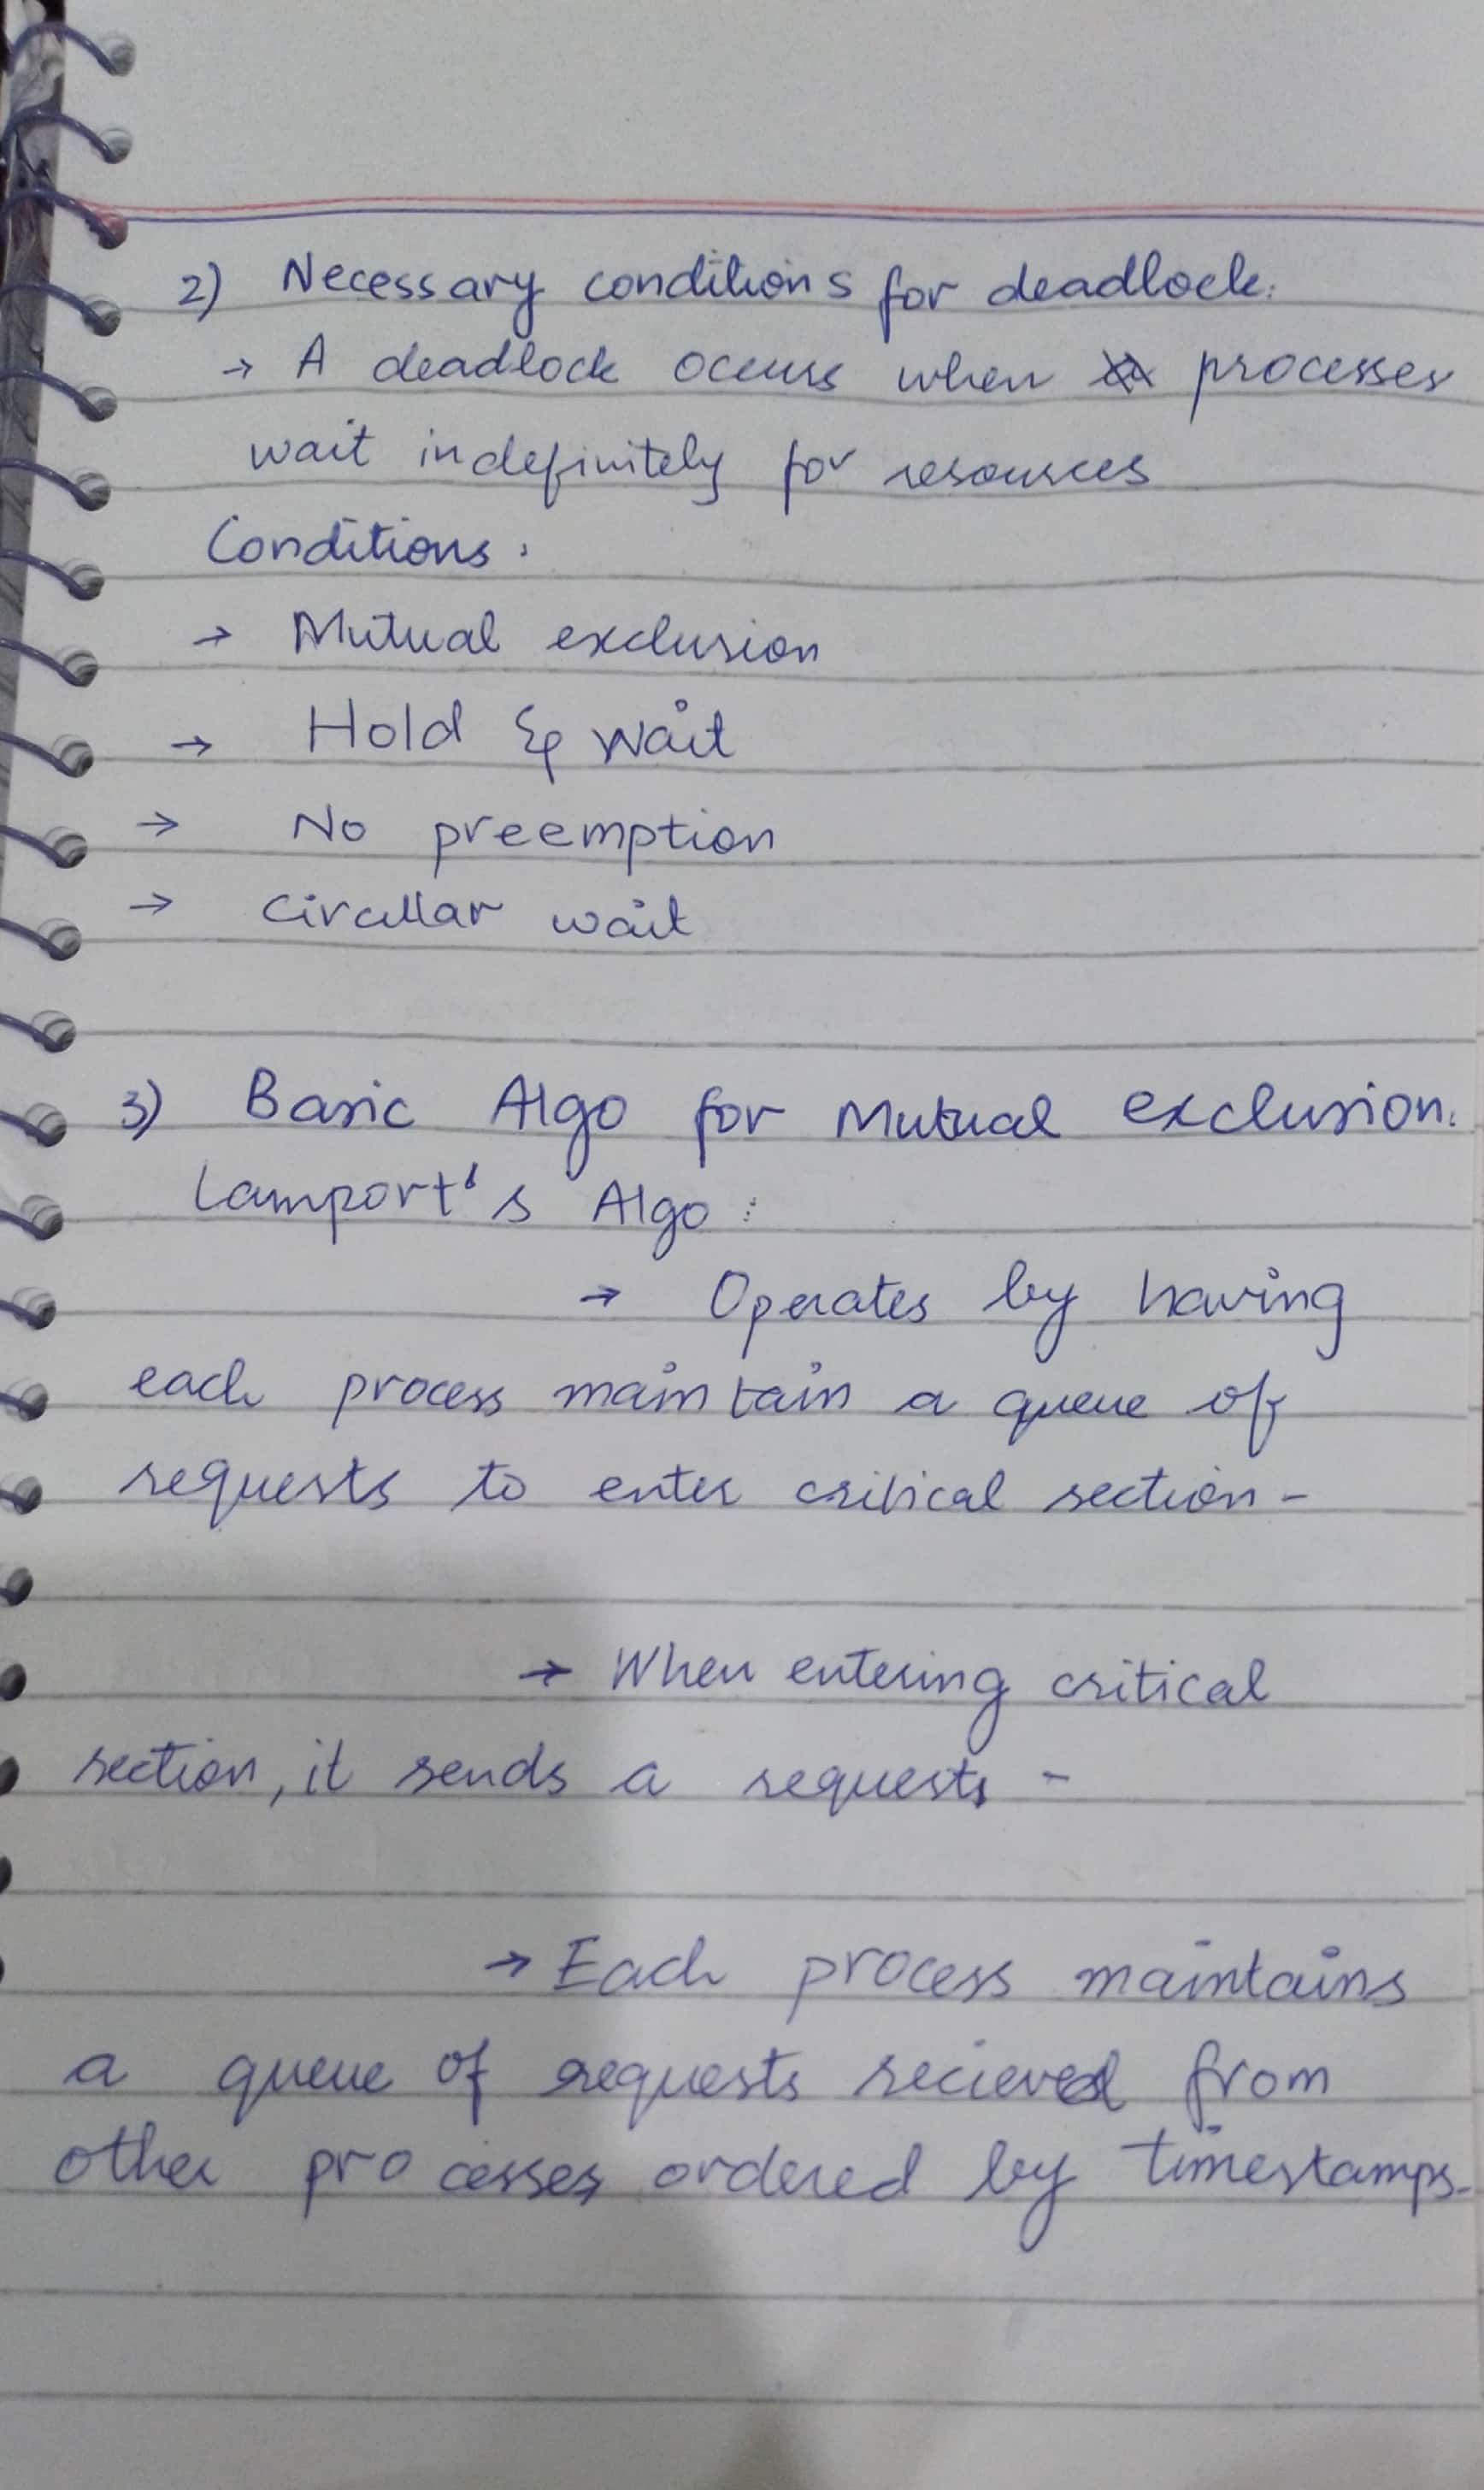 2) Necessary conditions for deadlock:
→ A deadlock occurs when processes
wait indefinitely for resources
Conditions :
→ Mutual exclusion
→ Hold & wait
→ No preemption
→ circular wait
3) Basic Algo for Mutual exclusion.
Lamport's Algo :
→ Operates by having
each process maintain a queue of
requests to enter critical section -
→ When entering critical
section, it sends a requests -
→ Each process maintains
a queue of requests recieved from
other processes ordered by timestamps.